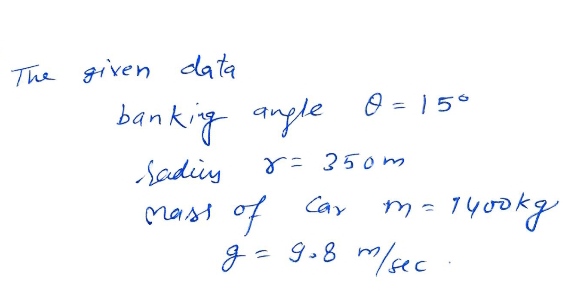 The given data
banking angle θ = 15°
radius r = 350m
mass of car m = 1400kg
g = 9.8 m/sec.